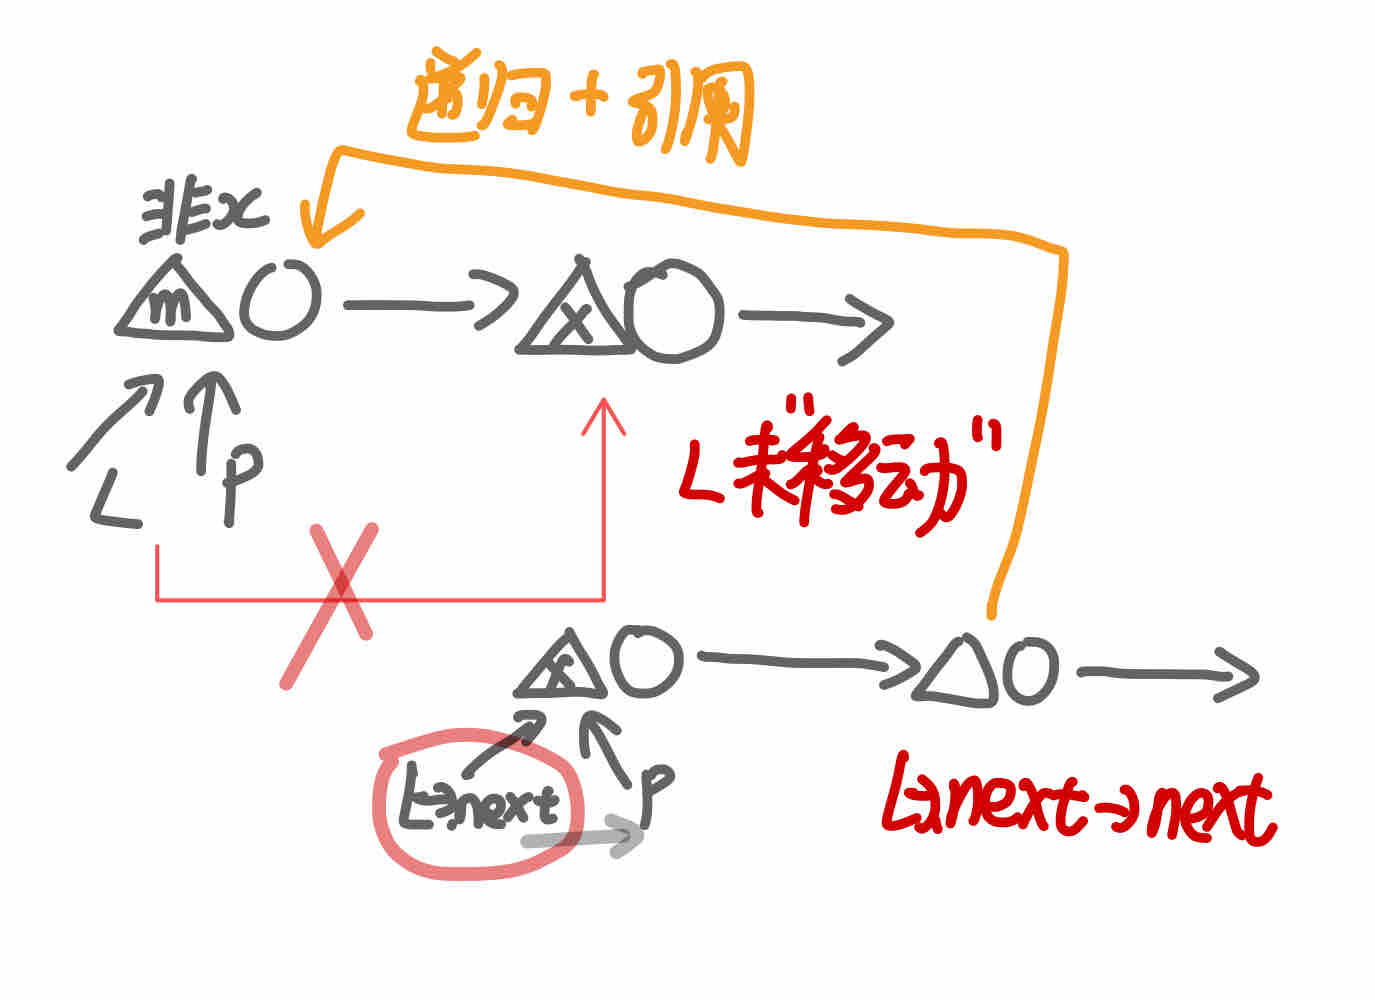 递归+引用
非x
m
x
L
P
L"未移动"
x
L→next
P
L→next→next